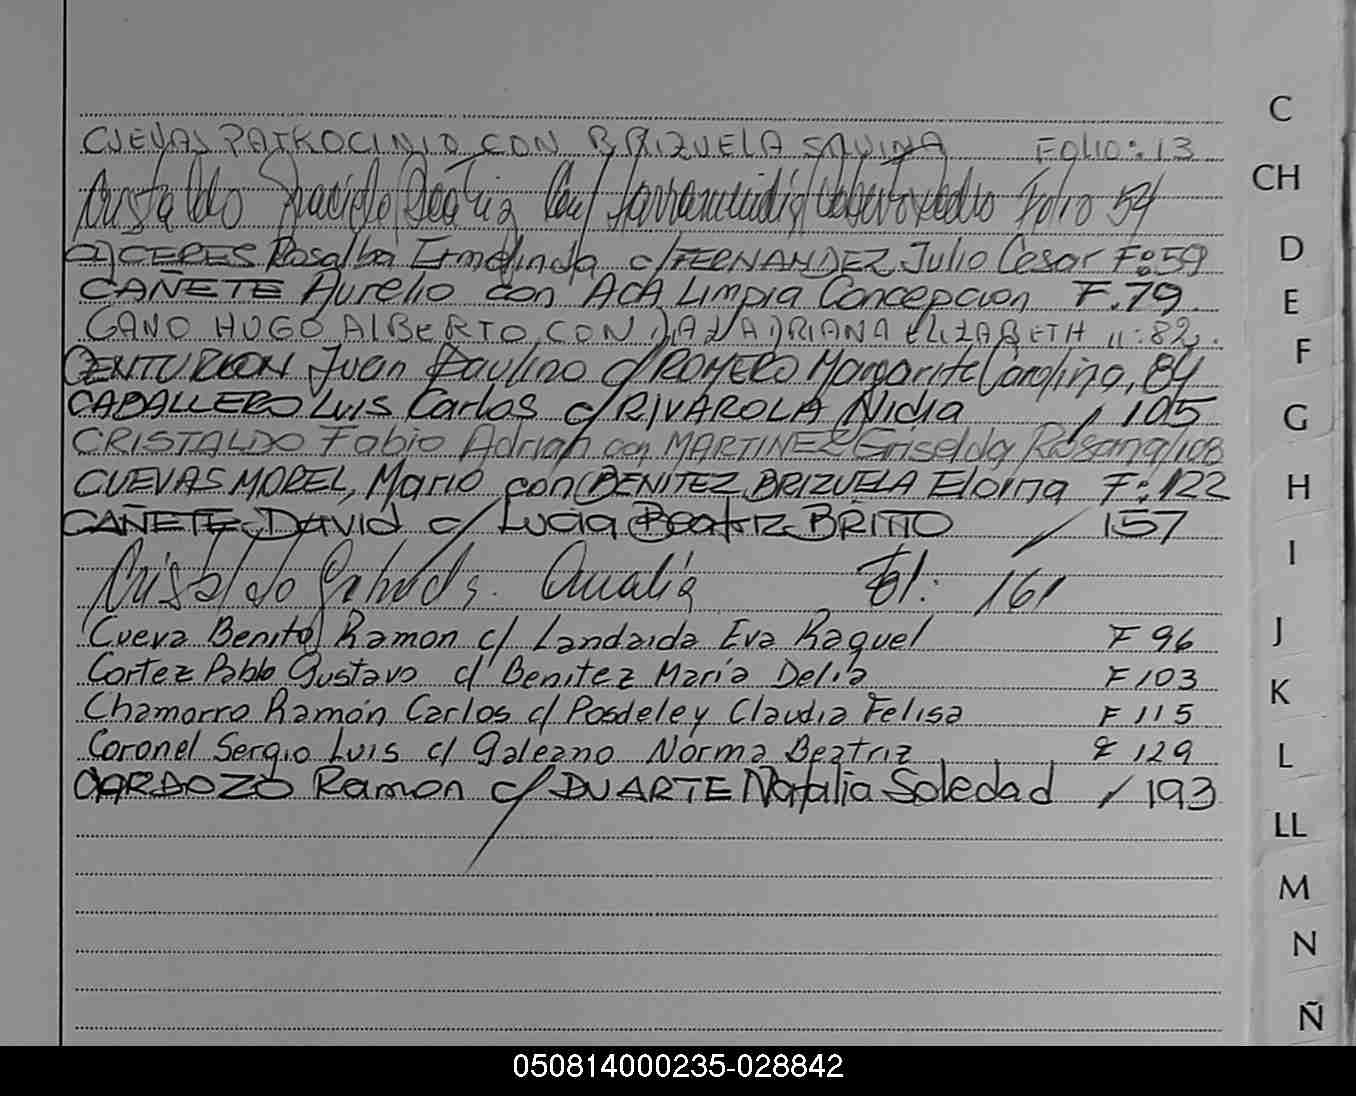 CUEVAS PATROCINIO CON BRIZUELA SAVINA Folio: 13
Cristaldo Graciela Beatriz Con Folio 54
CACERES Rosalba Ermelinda c/ FERNANDEZ Julio Cesar F: 59
CAÑETE Aurelio con ACA Limpia Concepcion F. 79
CANO HUGO ALBERTO CON ADRIANA ELIZABETH 11: 82
CENTURION Juan Paulino c/ ROMERO Margarita Carolina, 84
CABALLERO Luis Carlos c/ RIVAROLA Nidia / 105
CRISTALDO Fabio Adrian con MARTINEZ Griselda Rosana / 108
CUEVAS MOREL, Mario con BENITEZ BRIZUELA Elorna F: 122
CAÑETE David c/ Lucia Beatriz BRITTO / 157
Cristaldo Amalia Fol: 161
Cueva Benito Ramon c/ Landaida Eva Raquel F 96
Cortez Pablo Gustavo c/ Benitez María Delia F 103
Chamorro Ramón Carlos c/ Posdeley Claudia Felisa F 115
Coronel Sergio Luis c/ Galeano Norma Beatriz F 129
CARDOZO Ramon c/ DUARTE Natalia Soledad / 193
C
CH
D
E
F
G
H
I
J
K
L
LL
M
N
Ñ
050814000235-028842